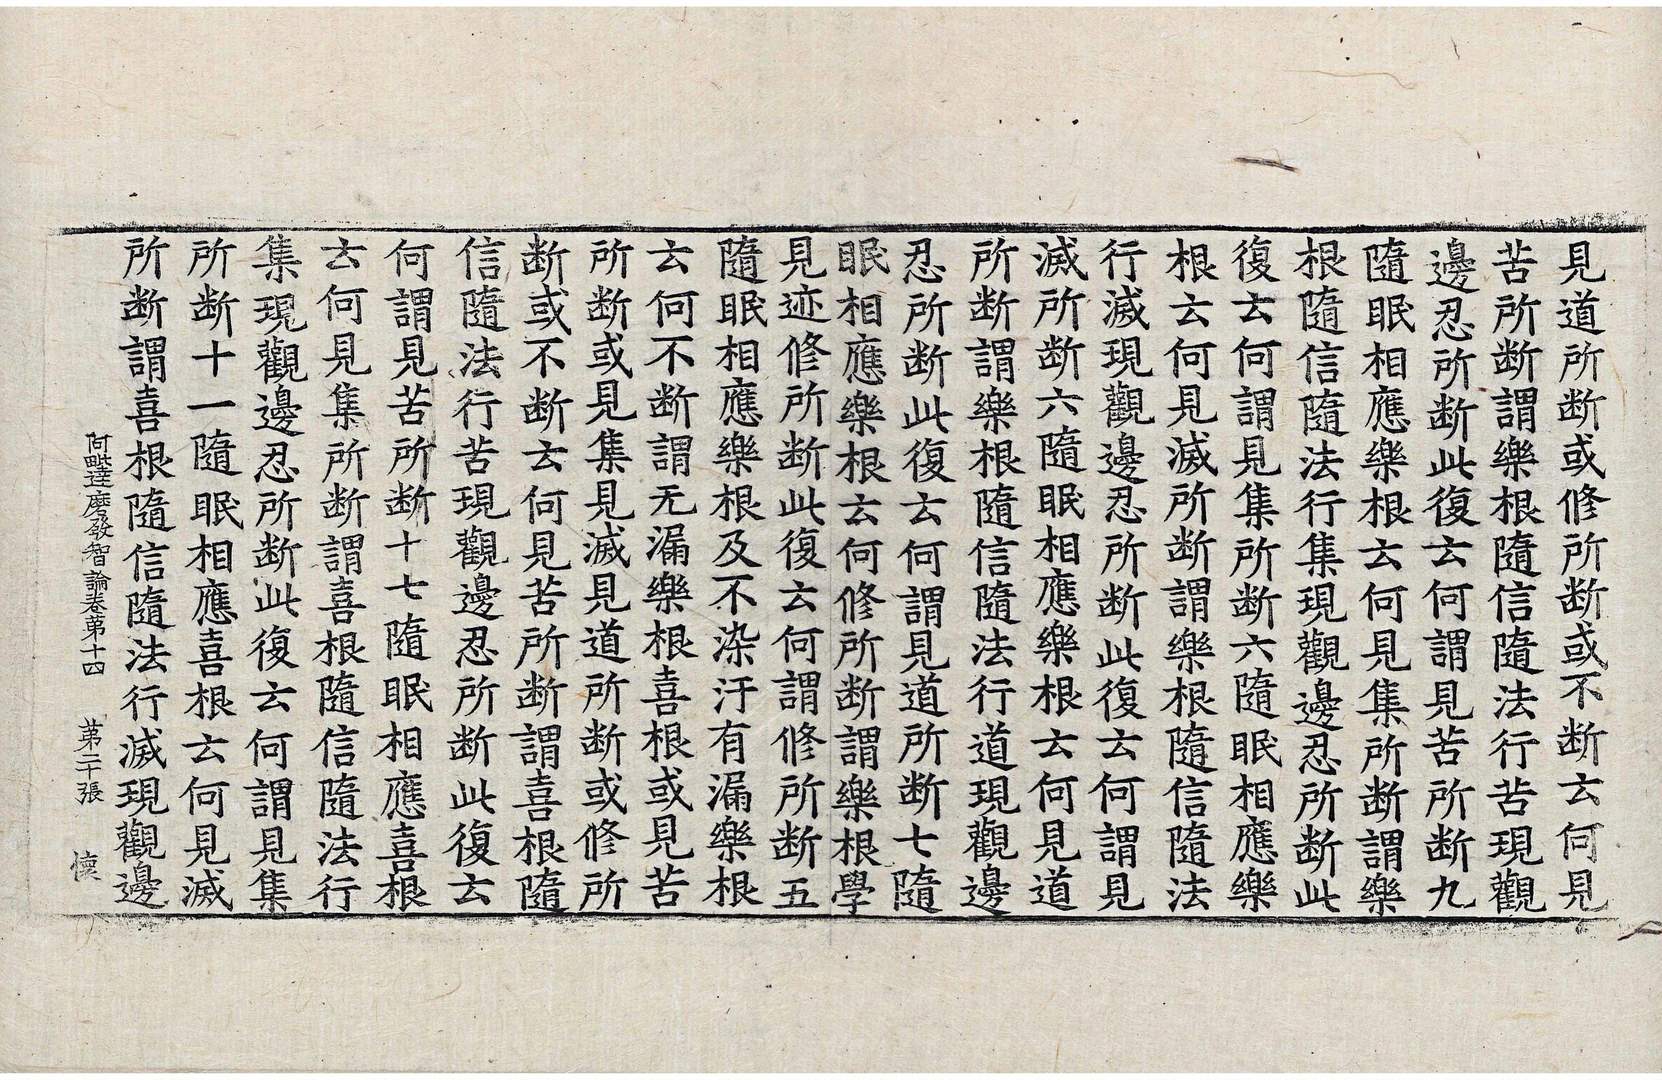 見道所断或修所断或不断云何見
苦所断謂樂根隨信隨法行苦現觀
邊忍所断此復云何謂見苦所断九
隨眠相應樂根云何見集所断謂樂
根隨信隨法行集現觀邊忍所断此
復云何謂見集所断六隨眠相應樂
根云何見滅所断謂樂根隨信隨法
行滅現觀邊忍所断此復云何謂見
滅所断六隨眠相應樂根云何見道
所断謂樂根隨信隨法行道現觀邊
忍所断此復云何謂見道所断七隨
眠相應樂根云何修所断謂樂根學
見迹修所断此復云何謂修所断五
隨眠相應樂根及不染汙有漏樂根
云何不断謂无漏樂根喜根或見苦
所断或見集見滅見道所断或修所
断或不断云何見苦所断謂喜根隨
信隨法行苦現觀邊忍所断此復云
何謂見苦所断十七隨眠相應喜根
云何見集所断謂喜根隨信隨法行
集現觀邊忍所断此復云何謂見集
所断十一隨眠相應喜根云何見滅
所断謂喜根隨信隨法行滅現觀邊
阿毗達磨發智論卷第十四 第二十張 懷